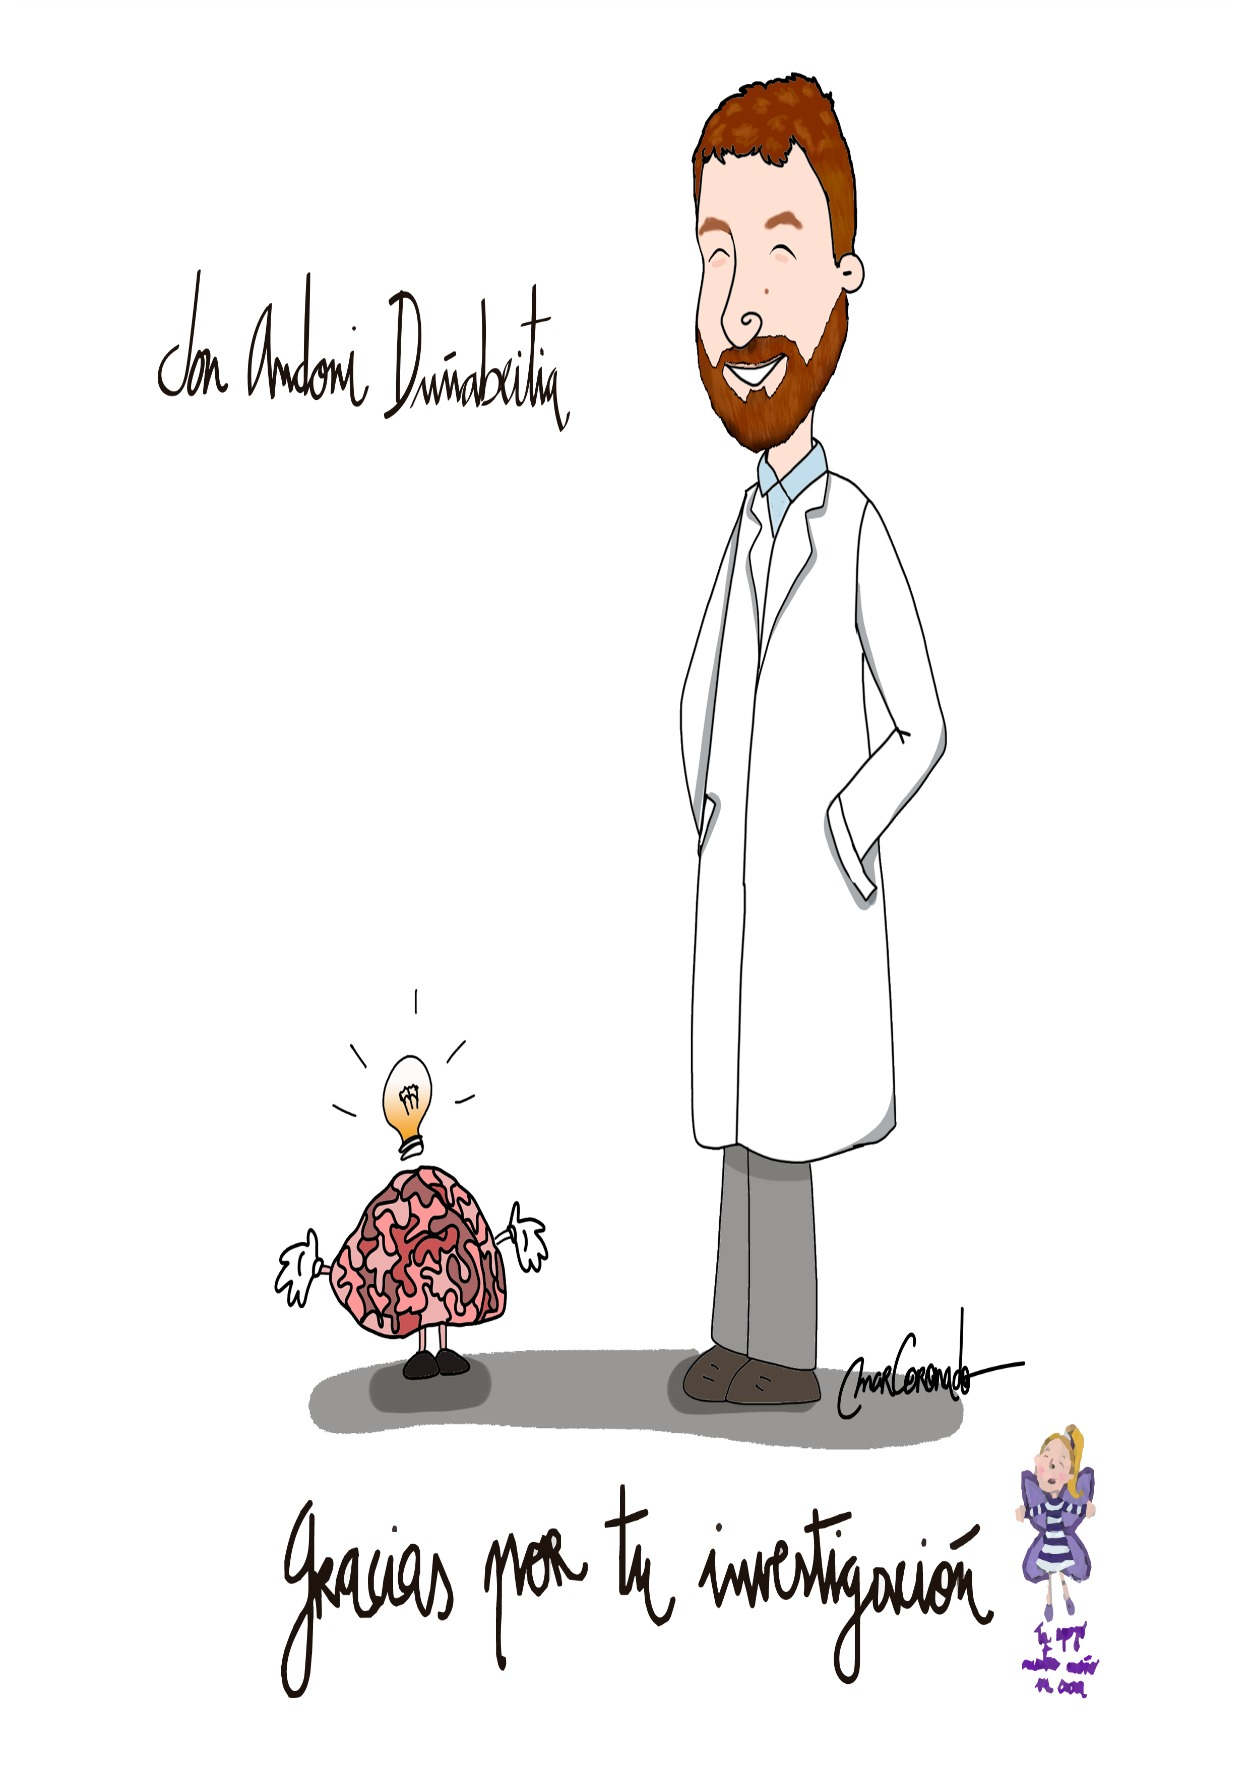 Jon Andoni Duñabeitia
OmarCoronado
Gracias por tu investigación